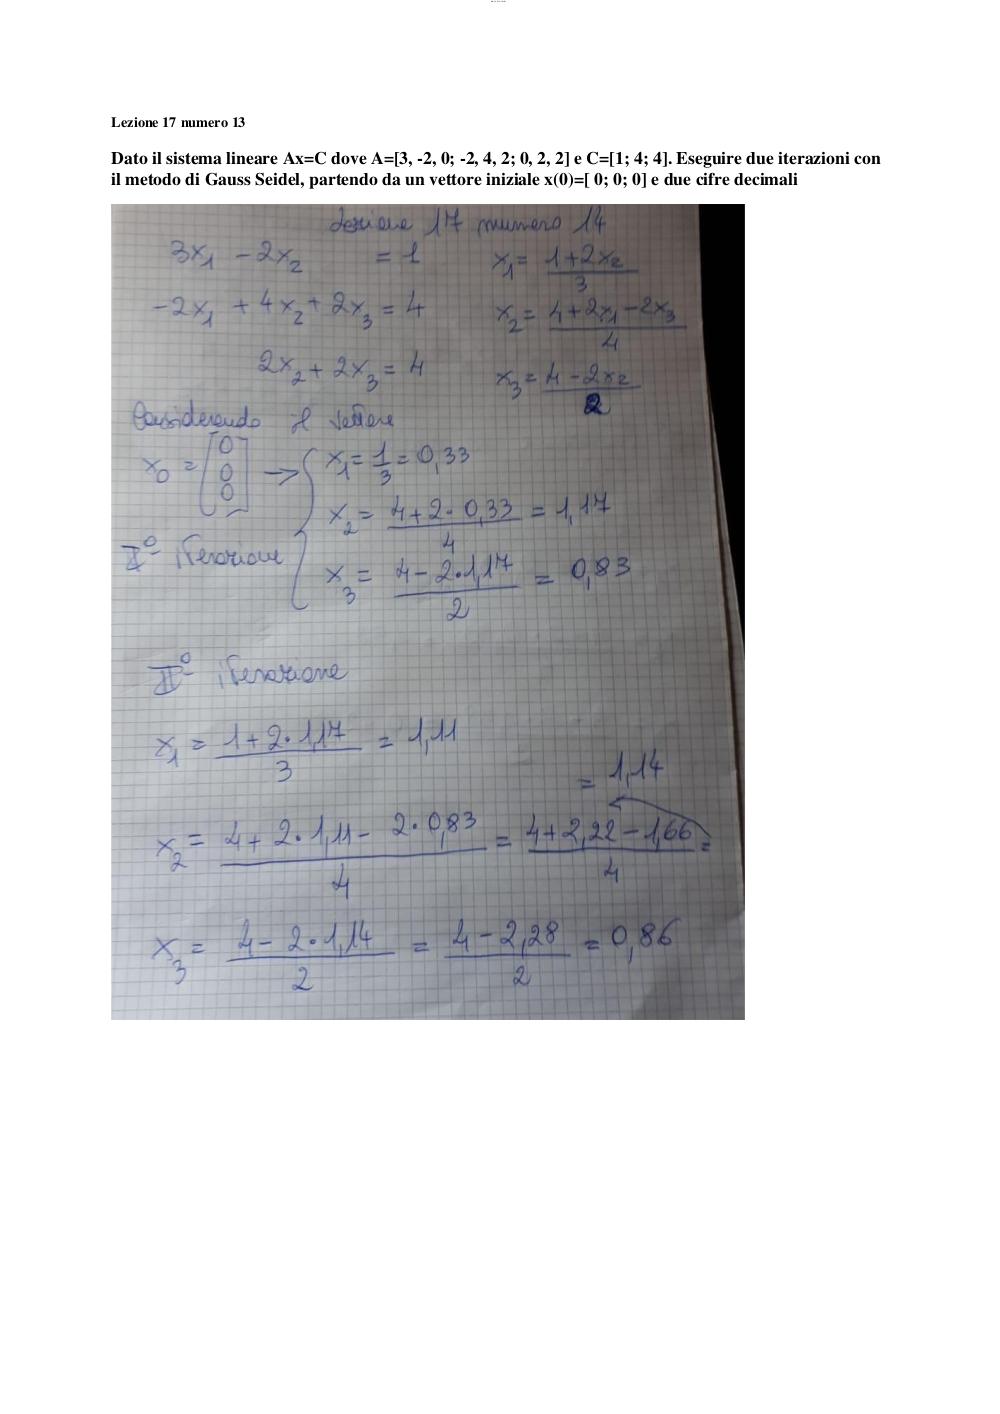 Lezione 17 numero 13
Dato il sistema lineare Ax=C dove A=[3, -2, 0; -2, 4, 2; 0, 2, 2] e C=[1; 4; 4]. Eseguire due iterazioni con
il metodo di Gauss Seidel, partendo da un vettore iniziale x(0)=[ 0; 0; 0] e due cifre decimali
Lezione 17 numero 14
3x₁ - 2x₂ = 1
x₁ = (1+2x₂)/3
-2x₁ + 4x₂ + 2x₃ = 4
x₂ = (4+2x₁-2x₃)/4
2x₂ + 2x₃ = 4
x₃ = (4-2x₂)/2
Considerando il vettore
x₀ = [0 0 0] → { x₁ = 1/3 = 0,33
x₂ = (4+2·0,33)/4 = 1,17
I° iterazione
x₃ = (4-2·1,17)/2 = 0,83
II° iterazione
x₁ = (1+2·1,17)/3 = 1,11
x₂ = (4+2·1,11-2·0,83)/4 = (4+2,22-1,66)/4 =
= 1,14
x₃ = (4-2·1,14)/2 = (4-2,28)/2 = 0,86